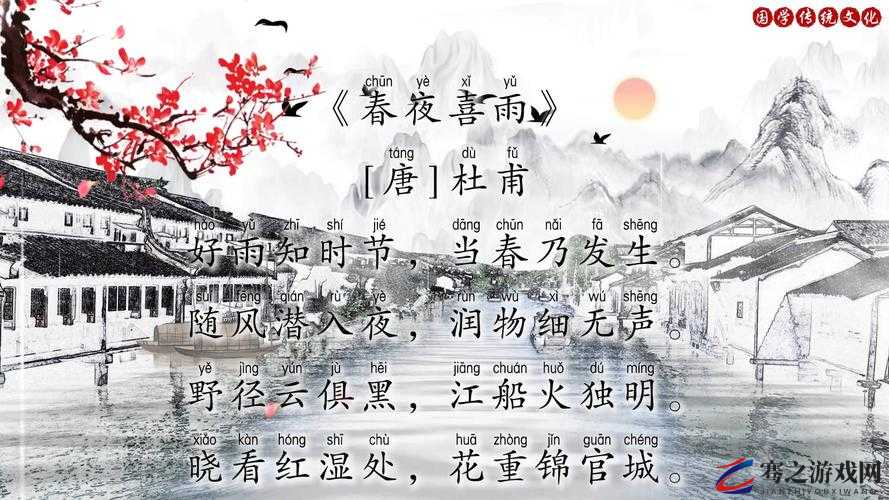 国学传统文化
chūn yè xǐ yǔ
《春夜喜雨》
táng dù fǔ
[唐]杜甫
hǎo yǔ zhī shí jié dāng chūn nǎi fā shēng
好雨知时节，当春乃发生。
suí fēng qián rù yè rùn wù xì wú shēng
随风潜入夜，润物细无声。
yě jìng yún jù hēi jiāng chuán huǒ dú míng
野径云俱黑，江船火独明。
xiǎo kàn hóng shī chù huā zhòng jǐn guān chéng
晓看红湿处，花重锦官城。
骞之游戏网